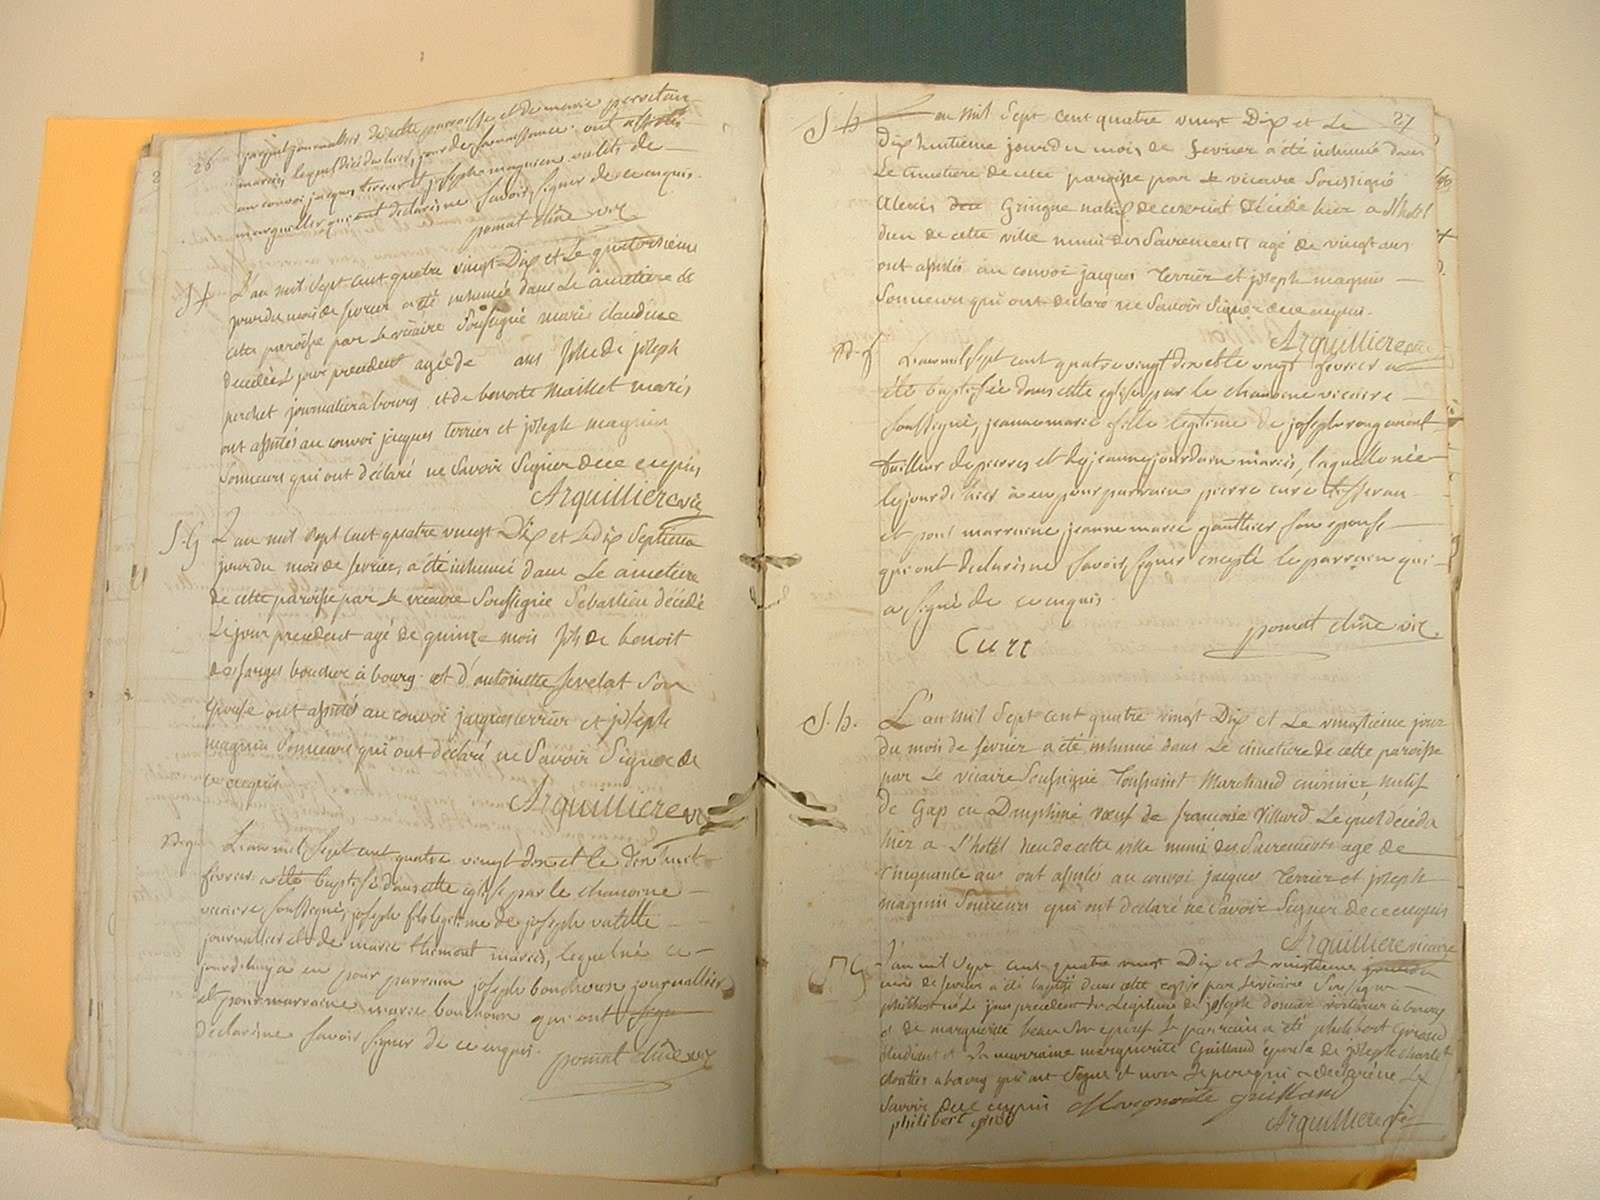 26
jacquet journallier de cette paroisse et de marie
mariés, lequel décéda hier, jour de sa naissance. ont assistés
au convoi jacques terrier et joseph magnien valets de
marguillier qui ont déclarés ne savoir signer de ce enquis.
pomat chne vic
S f L'an mil sept cent quatre vingt Dix et Le quatorsieme
jour du mois de fevrier a été inhumée dans Le cimetiere de
cette paroisse par Le vicaire Soussigné marie claudine
decedée Le jour precedent agée de ans fille de joseph
perchet journalier a bourg et de benoite maillet mariés
ont assistés au convoi jacques terrier et joseph magnin
Sonneurs qui ont déclaré ne Savoir Signer de ce enquis
Arquilliere vic
S. G L'an mil Sept cent quatre vingt Dix et Le dix Septieme
jour du mois de fevrier, a été inhumé dans Le cimetiere
de cette paroisse par Le vicaire Soussignée Sebastien décédé
Le jour precedent agé de quinze mois fils de benoit
desfarges boucher à bourg et d'antoinette fevelat Son
Epouse ont assistés au convoi jacques terrier et joseph
magnin Sonneurs qui ont déclaré ne Savoir Signer de
ce enquis
Arquilliere vic
L'an mil Sept cent quatre vingt dix et le dix huit
fevrier a été baptisé dans cette eglise par le chanoine
vicaire soussigné, joseph fils legitime de joseph vatille
journallier et de marie thémont mariés, lequel né ce
jourd'huy a eu pour parrain joseph bouchoux journallier
et pour marraine marie bouchoux qui ont signé
déclarés ne savoir signer de ce enquis. pomat chne vic
27
S h L'an mil Sept cent quatre vingt Dix et Le
Dix huitieme jour du mois de fevrier a été inhumé dans
Le cimetiere de cette paroisse par Le vicaire Soussigné
Alexis Gringne natif de décédé hier a l'hotel
dieu de cette ville muni des Sacrements agé de vingt ans
ont assistés au convoi jacques terrier et joseph magnin
Sonneurs qui ont declaré ne Savoir Signer de ce enquis.
Arquilliere vic
L'an mil Sept cent quatre vingt dix et le vingt fevrier a
été baptisée dans cette eglise par le chanoine vicaire
soussigné, jeanne marie fille legitime de joseph rongement
tailleur de pierres et de jeanne jourdain mariés, laquelle née
le jour d'hier a eu pour parrain pierre curt tisseran
et pour marraine jeanne marie gauthier son epouse
qui ont déclarés ne savoir signer excepté le parrain qui
a signé de ce enquis.
Curt pomat chne vic.
S. h. L'an mil Sept cent quatre vingt Dix et Le vingtieme jour
du mois de fevrier a été inhumé dans Le cimetiere de cette paroisse
par Le vicaire Soussigné Toussaint Marchand cuisinier natif
de Gap en Dauphiné vœuf de francoise villard Lequel décéda
hier a L'hotel dieu de cette ville muni des Sacrements agé de
Cinquante ans ont assistés au convoi jacques terrier et joseph
magnin Sonneurs qui ont declaré ne Savoir Signer de ce enquis
Arquilliere vicaire
L'an mil Sept cent quatre vingt Dix et Le vingtieme jour du
mois de fevrier a été baptisé dans cette eglise par Le vicaire Soussigné
philibert né Le jour precedent fils Legitime de joseph a bourg
et de marguerite Le parrain a été philibert
étudiant et La marraine marguerite Guillaud épouse de joseph charlet
a bourg qui ont Signé et non Le pere qui a declaré ne Le
Savoir de ce enquis Marguerite guillaud
philibert Arquilliere vic